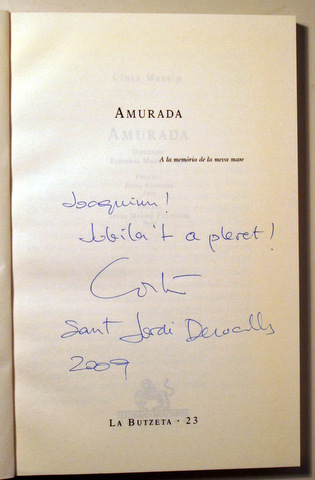 AMURADA
A la memòria de la meva mare
Joaquim!
Jubila't a pleret!
Sant Jordi Desvalls
2009
LA BUTZETA · 23